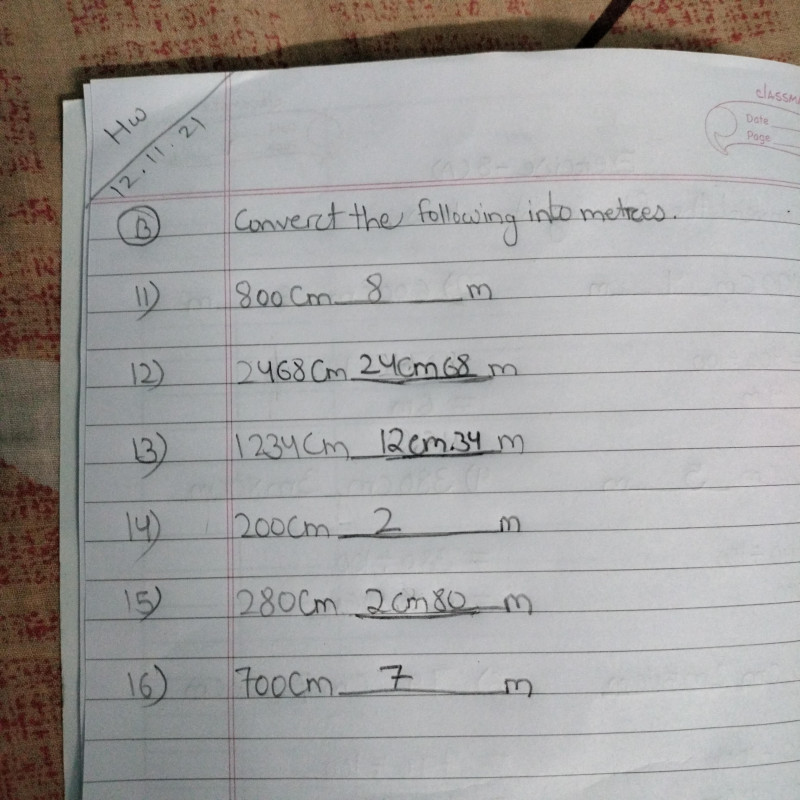 HW
12.11.21
CLASSM
Date
Page
B Convert the following into metres.
11) 800 Cm 8 m
12) 2468 Cm 24cm68 m
13) 1234 Cm 12cm.34 m
14) 200 Cm 2 m
15) 280 Cm 2cm80 m
16) 700 Cm 7 m